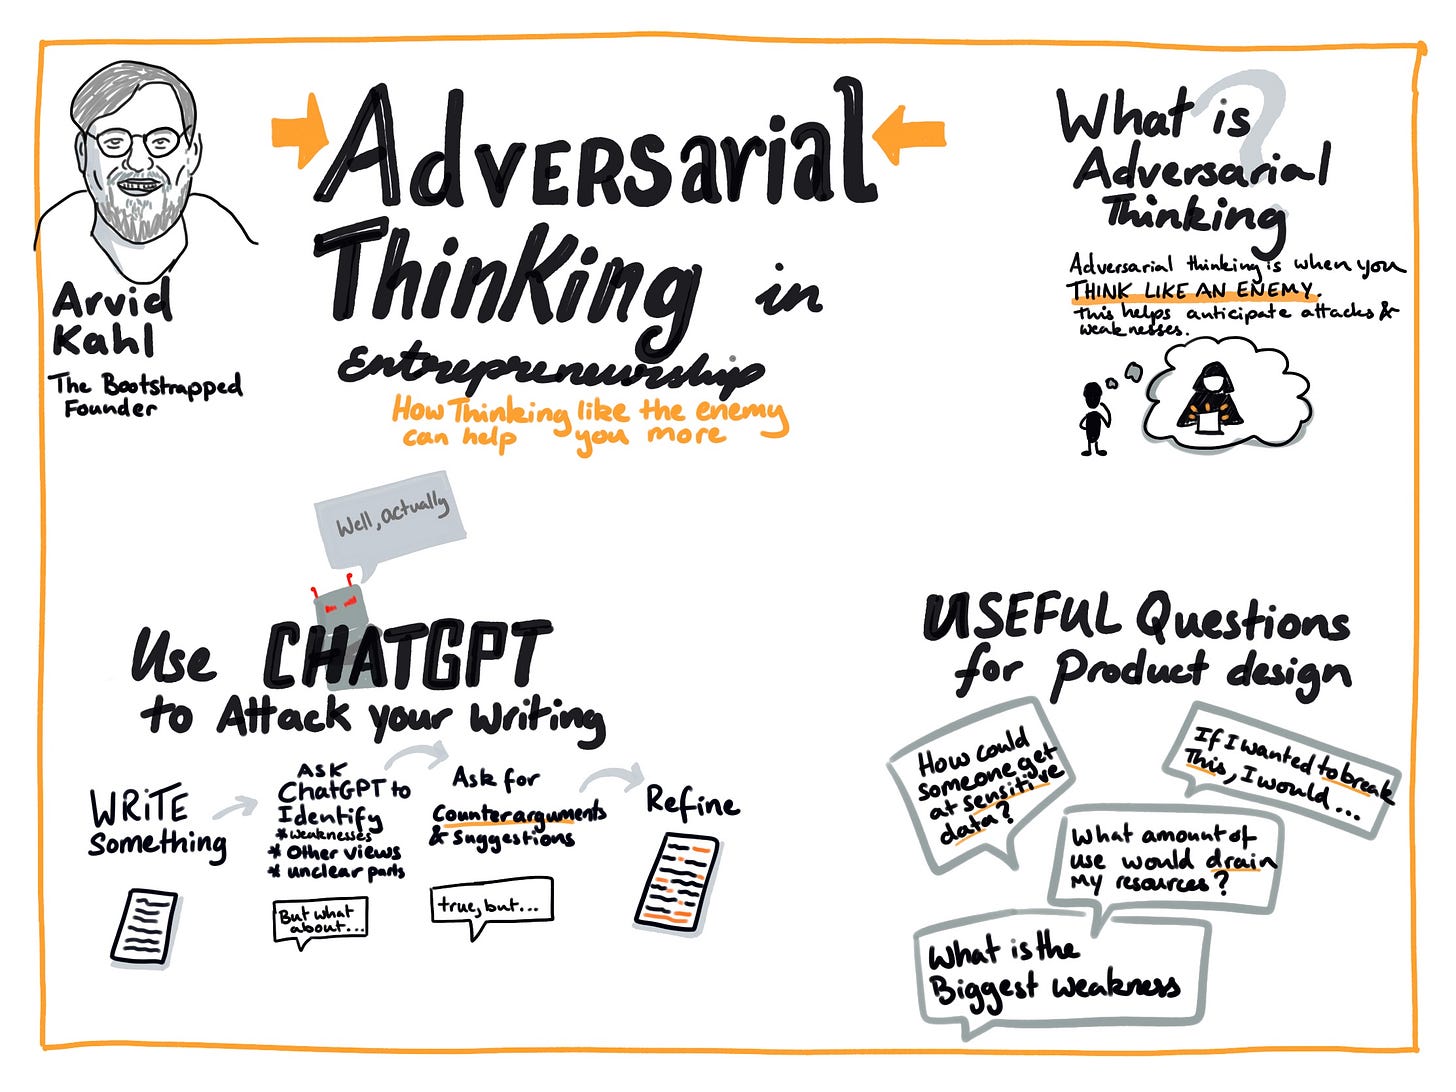 Arvid
Kahl
The Bootstrapped
Founder
Adversarial
Thinking in
Entrepreneurship
How Thinking like the enemy
can help you more
What is
Adversarial
Thinking
?
Adversarial thinking is when you
THINK LIKE AN ENEMY.
this helps anticipate attacks &
weaknesses.
Well, actually
Use CHATGPT
to Attack your writing
WRiTE
Something
ASK
ChatGPT to
Identify
* weaknesses
* Other views
* unclear parts
But what
about...
Ask for
Counterarguments
& Suggestions
true, but...
Refine
USEFUL Questions
for Product design
How could
someone get
at sensitive
data?
If I wanted to break
This, I would ...
What amount of
use would drain
My resources?
What is the
Biggest weakness